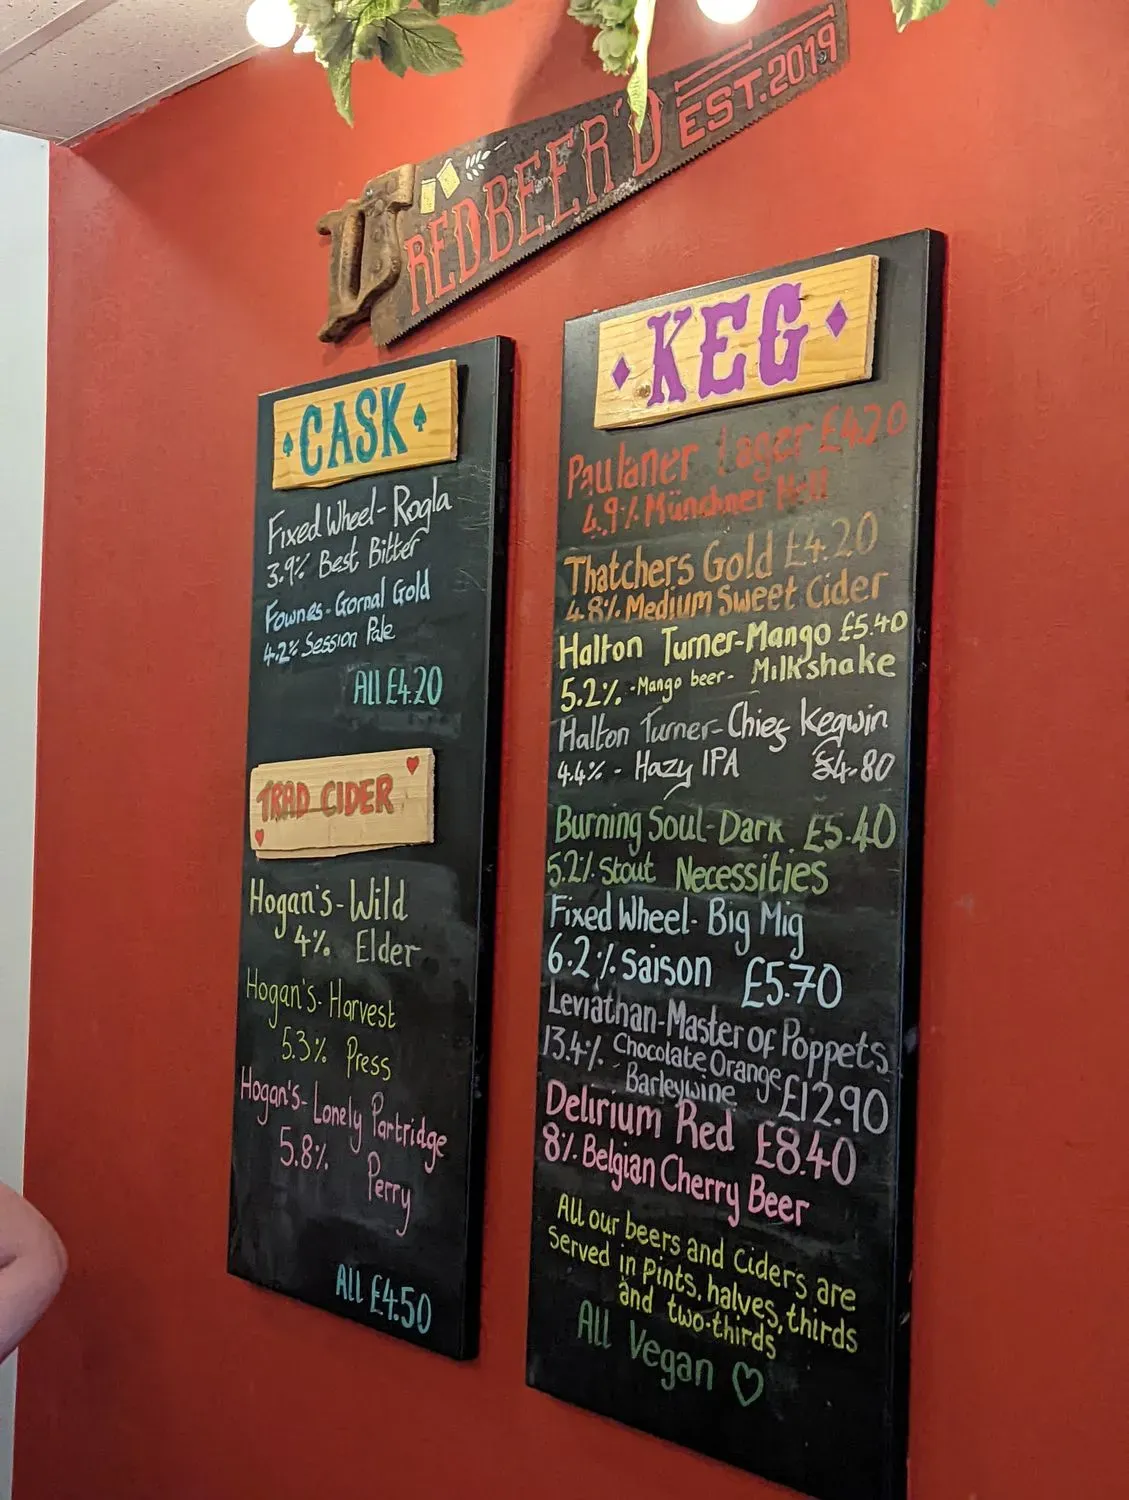 REDBEER'D EST. 2019
CASK
Fixed Wheel - Rogla
3.9% Best Bitter
Fownes - Gornal Gold
4.2% Session Pale
ALL £4.20
TRAD CIDER
Hogan's - Wild
4% Elder
Hogan's - Harvest
5.3% Press
Hogan's - Lonely Partridge
5.8% Perry
ALL £4.50
KEG
Paulaner Lager £4.70
4.9% Münchner Hell
Thatchers Gold £4.20
4.8% Medium Sweet Cider
Halton Turner - Mango £5.40
5.2% - Mango beer - Milkshake
Halton Turner - Chief Kegwin
4.4% - Hazy IPA £4.80
Burning Soul - Dark £5.40
5.2% Stout Necessities
Fixed Wheel - Big Mig
6.2% Saison £5.70
Leviathan - Master of Poppets
13.4% Chocolate Orange
Barleywine £12.90
Delirium Red £8.40
8% Belgian Cherry Beer
All our beers and ciders are
served in pints, halves, thirds
and two-thirds
All Vegan ♡